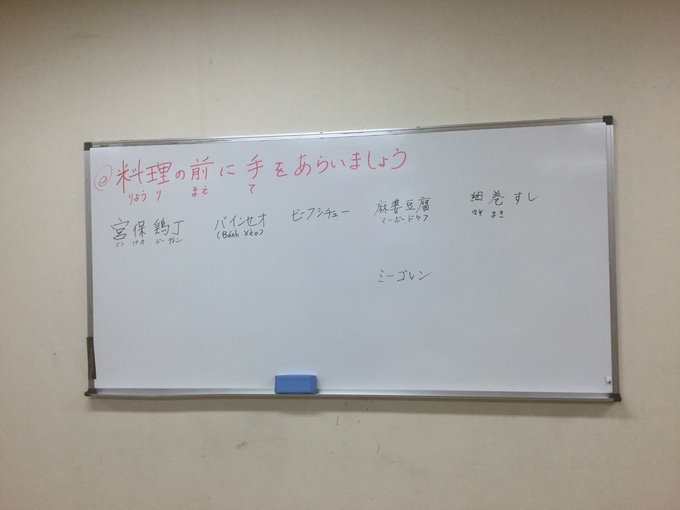 @料理の前に手をあらいましょう
りょうり まえ て
宮保鶏丁 バインセオ ビーフシチュー 麻婆豆腐 細巻すし
(Bánh Xèo) マーボードウフ ほそ まき
ミーゴレン